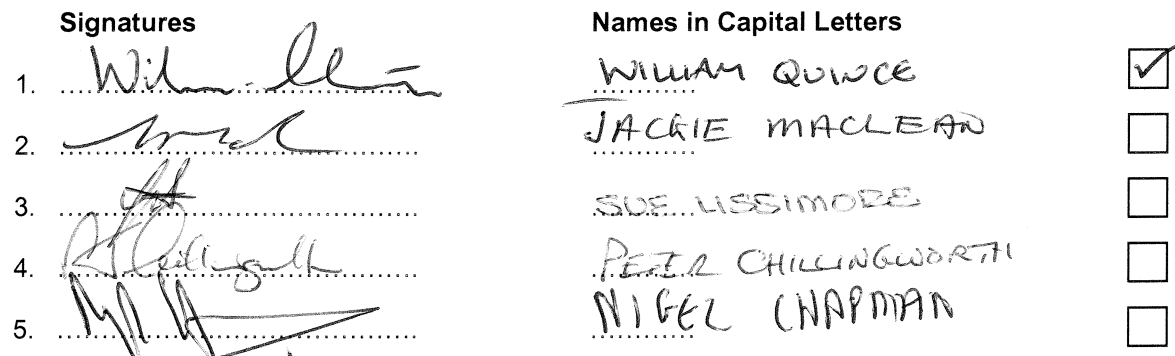 Signatures Names in Capital Letters
1. WILLIAM QUINCE
2. JACKIE MACLEAN
3. SUE LISSIMORE
4. PETER CHILLINGWORTH
5. NIGEL CHAPMAN